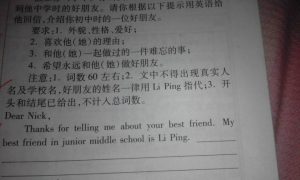 到他中学时的好朋友。请你根据以下提示用英语给
他回信,介绍你初中时的一位好朋友。
要求:1. 外貌,性格,爱好;
2. 喜欢他(她)的理由;
3. 和他(她)一起做过的一件难忘的事;
4. 希望永远和他(她)做好朋友。
注意:1. 词数 60 左右;2. 文中不得出现真实人
名及学校名,好朋友的姓名一律用 Li Ping 指代;3. 开
头和结尾已给出,不计入总词数。
Dear Nick,
Thanks for telling me about your best friend. My
best friend in junior middle school is Li Ping.